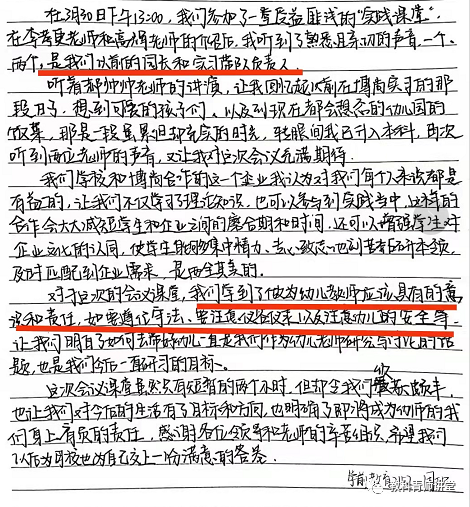 在3月30日下午13:00，我们参加了一重受益匪浅的“实践课堂”。
在李老师和高老师的介绍后，我听到了熟悉且亲切的声音，一个、
两个，是我们以前的园长和实习带队负责人
听着都帅帅老师的讲演，让我回忆起以前在博尚实习的那
段日子，想到可爱的孩子们，以及到现在都会想念的幼儿园的
饭菜，那是一段累但却充实的时光，转眼间我已升入本科，再次
听到两位老师的声音，又让我对这次会议充满期待。
我们学校和博尚合作的这一个企业我认为对我们每个人来说都是
有益的，让我们不仅学习了理论知识，也可以参与到实践当中，这样的
合作会大大减短学生和企业之间的磨合期和时间，还可以增强学生对
企业文化的认同，使学生能够集中精力、专心致志地到去钻研本领，
及时匹配到企业需求，是两全其美的。
对于这次的会议课堂，我们学到了做为幼儿教师应该具有的意
识和责任，如要遵纪守法、要注意仪容仪表以及注意幼儿的安全等
让我们明白如何去带好幼儿一直是我们作为幼儿老师研究与讨论的话
题，也是我们今后一直研习的目标。
这次会议课堂虽然只有短暂的两个小时，但却令我们收获颇丰，
也让我们对今后的生活有了目标和方向，也明确了即将成为幼师的我
们身上肩负的责任，感谢各位领导和老师的辛苦组织，希望我们
以后为母校也为自己交上一份满意的答卷。
教科育师讲堂